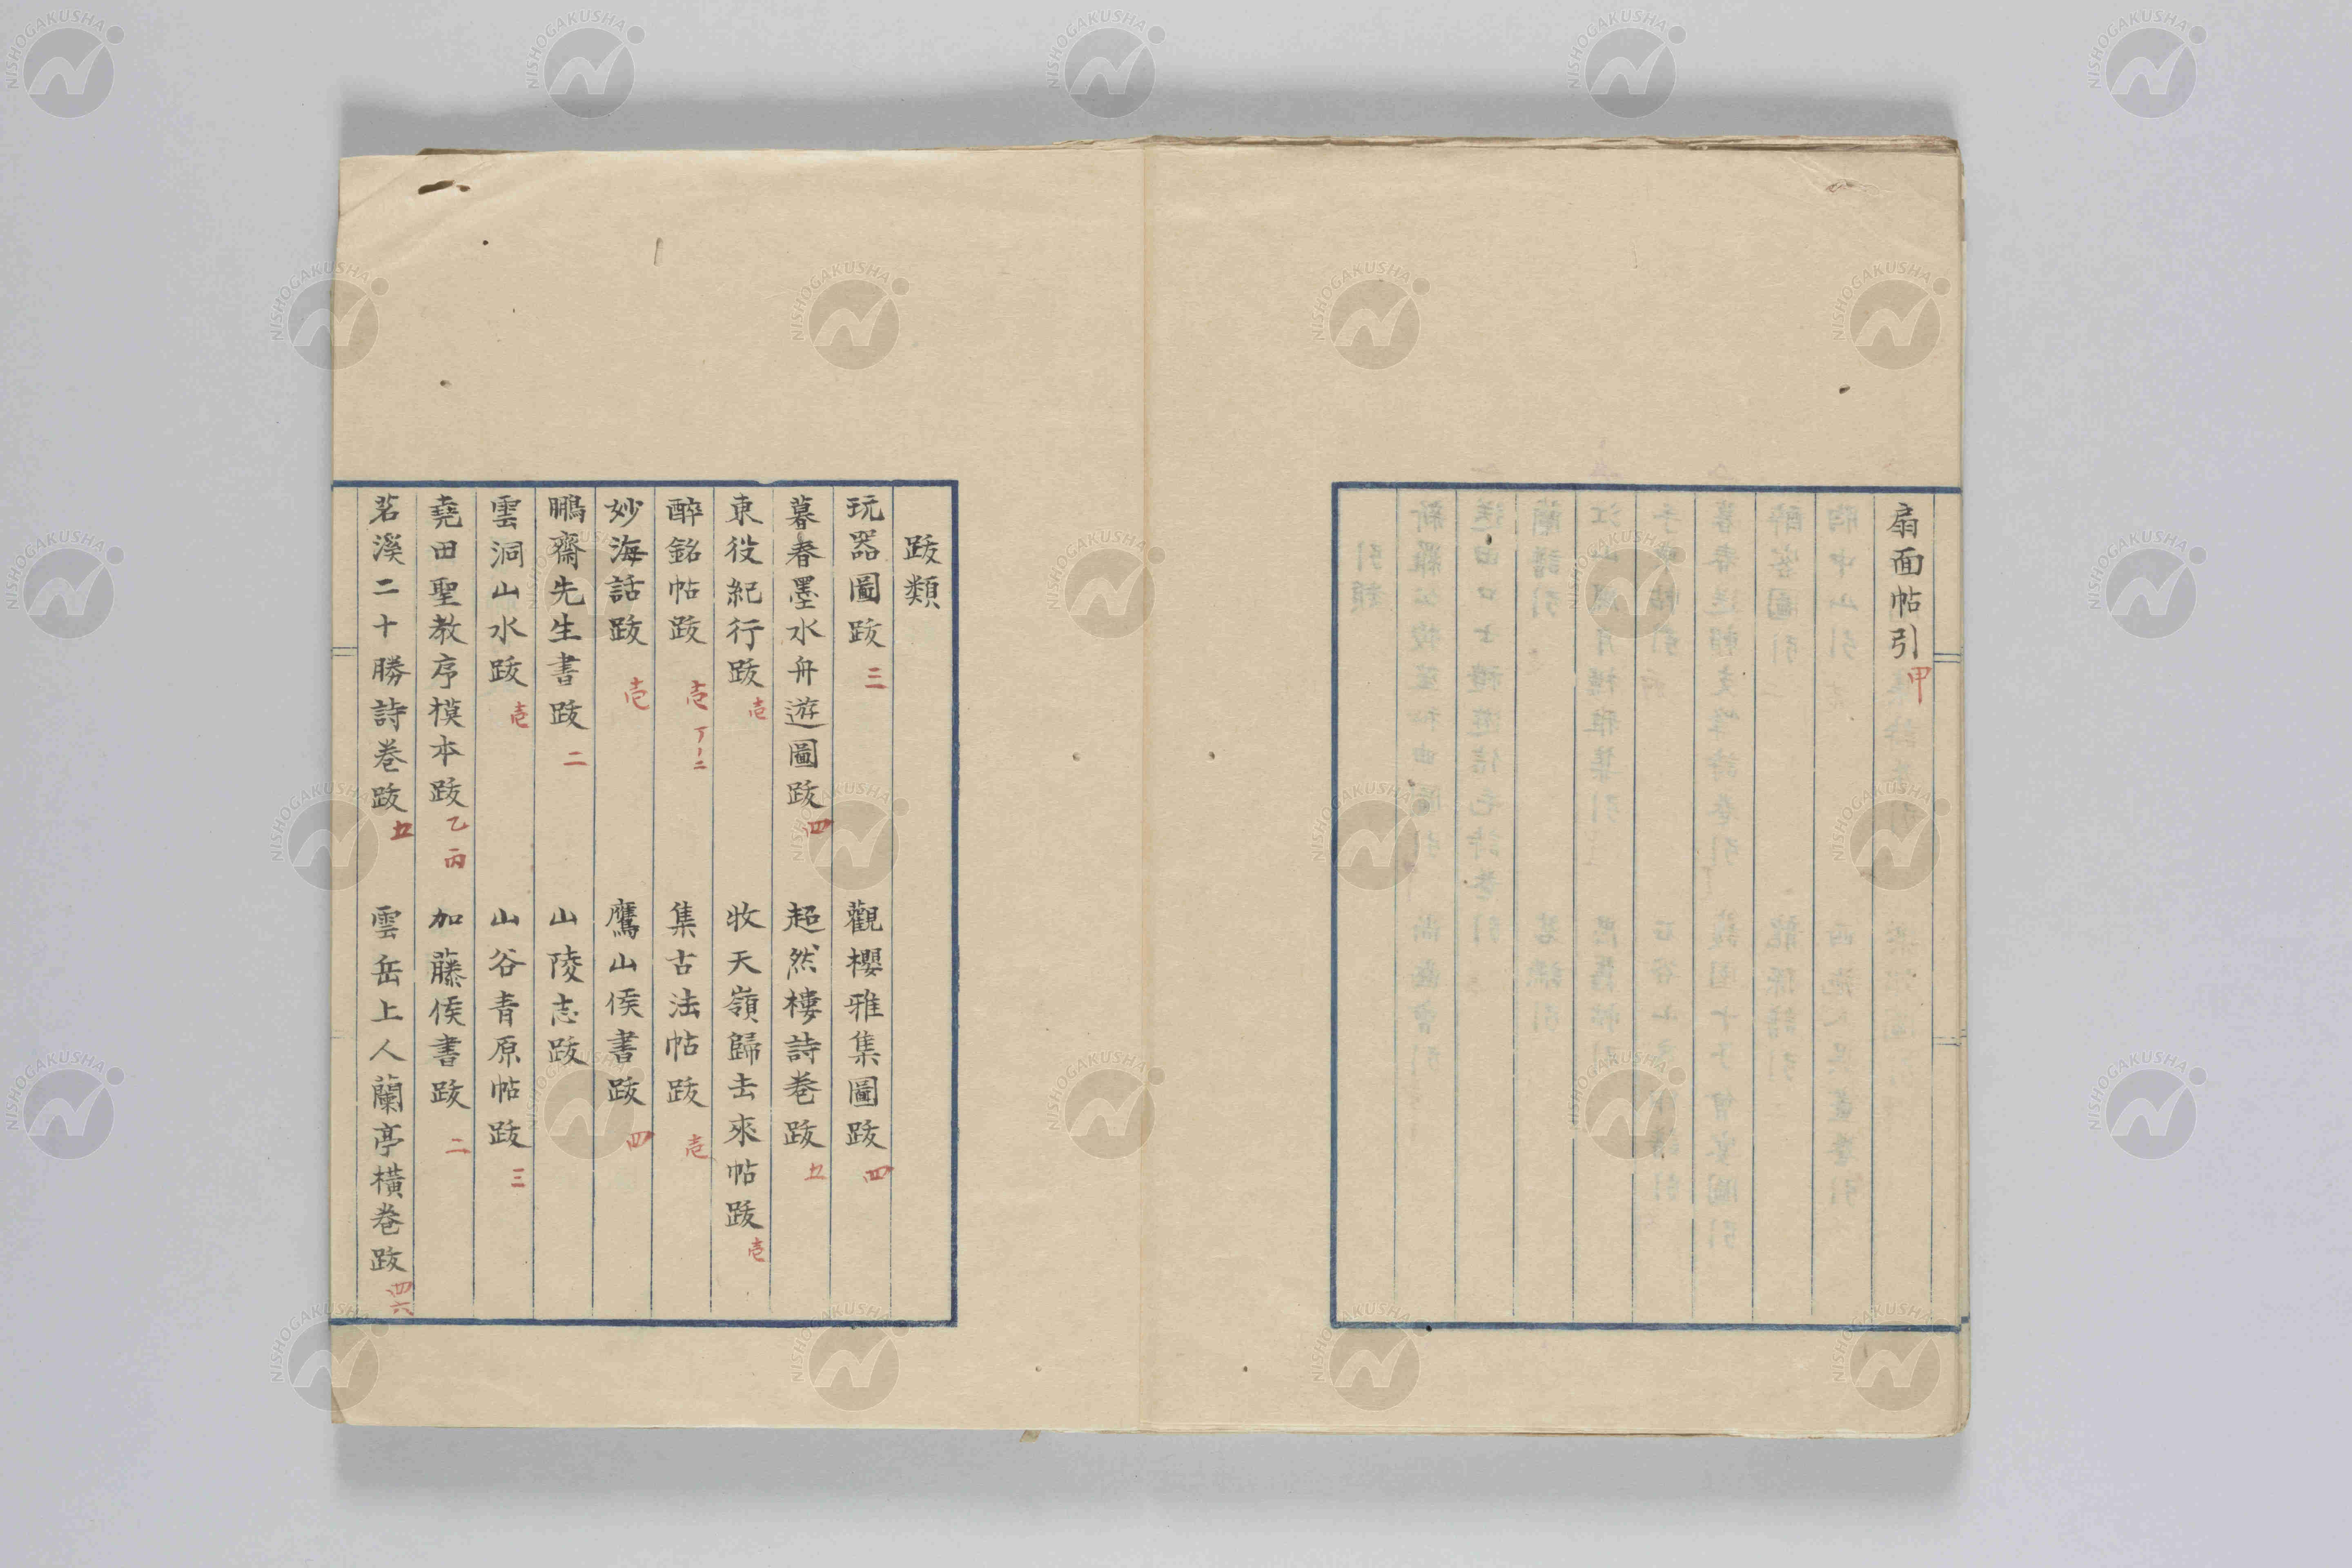 扇面帖引 甲
跋類
玩器圖跋 三 觀櫻雅集圖跋 四
暮春墨水舟遊圖跋 四 超然樓詩巻跋 五
東役紀行跋 壱 收天嶺歸去來帖跋 壱
醉銘帖跋 壱 集古法帖跋 壱
妙海話跋 壱 鷹山侯書跋 四
鵬齋先生書跋 二 山陵志跋
雲洞山水跋 壱 山谷青原帖跋 三
堯田聖教序模本跋 乙 丙 加藤侯書跋 二
茗溪二十勝詩巻跋 五 雲岳上人蘭亭橫巻跋 四六